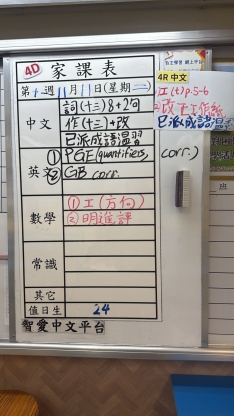 4D 家課表
第十週 11月11日(星期二)
中文
詞(十三)8+2句
作(十三)+改
已派成語溫習
英文
① PGE(quantifiers, corr.)
② GB corr.
數學
① 工(方向)
② 明進評
常識
其它
值日生 24
智愛中文平台
4R 中文
已派成語溫
班